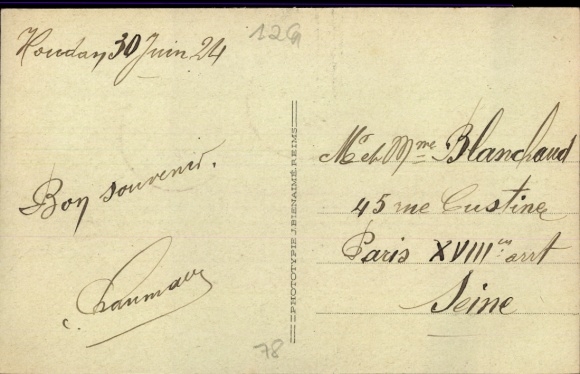 Houdan 30 Juin 24
12G
Bon souvenir.
PHOTOTYPIE J. BIENAIMÉ, REIMS
Mr et Mme Blanchaud
45 rue Custine
Paris XVIIIm arrt
Seine
78